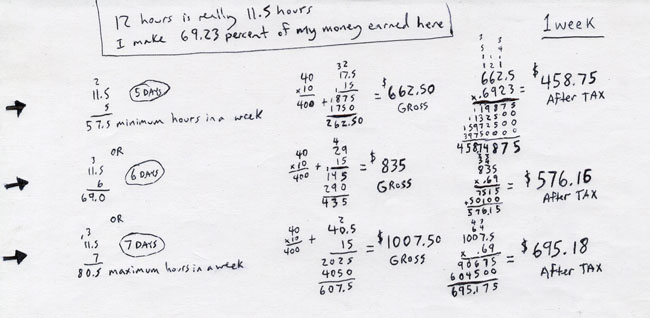 12 hours is really 11.5 hours
I make 69.23 percent of my money earned here
1 week
2
11.5
5
57.5 minimum hours in a week
5 DAYS
40
x10
400 +
32
17.5
15
1875
1750
262.50
= $662.50
GROSS
662.5
x.6923
19875
132500
5972500
39750000
45874875
= $458.75
After TAX
OR
3
11.5
6
69.0
6 DAYS
40
x10
400 +
4
29
15
145
290
435
= $835
GROSS
835
x.69
7515
+50100
576.15
= $576.16
After TAX
OR
3
11.5
7
80.5 maximum hours in a week
7 DAYS
40
x10
400 +
2
40.5
15
2025
4050
607.5
= $1007.50
GROSS
1007.5
x.69
90675
604500
695.175
= $695.18
After TAX